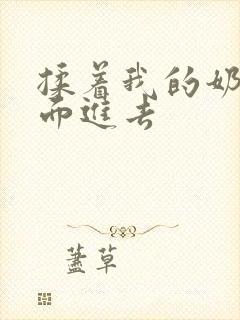 揉着我的奶
而進去
蓋草